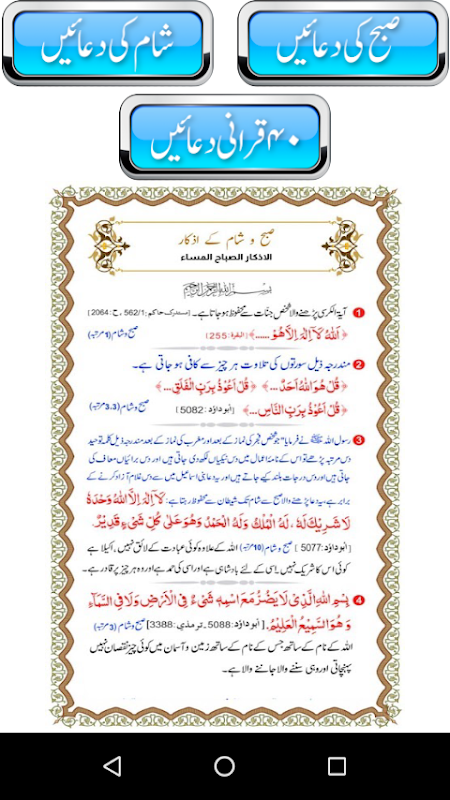 صبح کی دعائیں
شام کی دعائیں
۴۰ قرآنی دعائیں
صبح و شام کے اذکار
الاذکار الصباح المساء
بسم اللہ الرحمن الرحیم
1 آیۃ الکرسی پڑھنے والا شخص جنات سے محفوظ ہو جاتا ہے۔ [مستدرک حاکم: 562/1، ح: 2064]
﴿اَللّٰهُ لَآ اِلٰهَ اِلَّا هُوَ ......﴾ [البقرۃ: 255] صبح و شام (1 مرتبہ)
2 مندرجہ ذیل سورتوں کی تلاوت ہر چیز سے کافی ہو جاتی ہے۔
﴿قُلْ هُوَ اللّٰهُ اَحَدٌ ...﴾ ﴿قُلْ اَعُوْذُ بِرَبِّ الْفَلَقِ ...﴾
﴿قُلْ اَعُوْذُ بِرَبِّ النَّاسِ ...﴾ [ابوداؤد: 5082] صبح و شام (3،3 مرتبہ)
3 رسول اللہ ﷺ نے فرمایا "جو شخص فجر کی نماز کے بعد اور مغرب کی نماز کے بعد مندرجہ ذیل کلمہ توحید
دس مرتبہ پڑھے تو اس کے نامۂ اعمال میں دس نیکیاں لکھ دی جاتی ہیں اور دس برائیاں معاف کی
جاتی ہیں اور دس درجات بلند کیے جاتے ہیں اور یہ دعا بنی اسماعیل میں سے دس غلام آزاد کرنے کے
برابر ہے، یہ دعا پڑھنے والا صبح سے شام تک شیطان سے محفوظ رہتا ہے: لَآ اِلٰهَ اِلَّا اللّٰهُ وَحْدَهٗ
لَا شَرِيْكَ لَهٗ، لَهُ الْمُلْكُ وَلَهُ الْحَمْدُ وَهُوَ عَلٰى كُلِّ شَيْءٍ قَدِيْرٌ.
[ابوداؤد: 5077] صبح و شام (10 مرتبہ) اللہ کے علاوہ کوئی عبادت کے لائق نہیں، اکیلا ہے
کوئی اس کا شریک نہیں۔ اسی کے لئے بادشاہی ہے اور اسی کی حمد ہے اور وہ ہر چیز پر قادر ہے۔
4 بِسْمِ اللّٰهِ الَّذِيْ لَا يَضُرُّ مَعَ اسْمِهٖ شَيْءٌ فِي الْاَرْضِ وَلَا فِي السَّمَآءِ
وَهُوَ السَّمِيْعُ الْعَلِيْمُ. [ابوداؤد: 5088، ترمذی: 3388] صبح و شام (3 مرتبہ)
اللہ کے نام کے ساتھ جس کے نام کے ساتھ زمین و آسمان میں کوئی چیز نقصان نہیں
پہنچاتی اور وہی سننے والا جاننے والا ہے۔